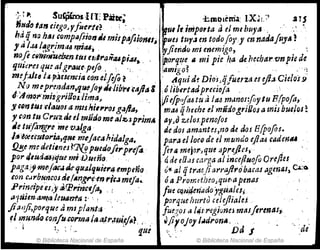 Suspiros III. Parte,
tindo tan ciego, y fuerte?
há q̃ no has compassion de mis passiones,
y a las lagrimas mias,
no se conmueven tus entrañas pias,
quieres que al graue peso
me falte la paciencia con el seso?
No me prendan, que soy de libre casta
ò Amor mis grillos lima,
y con tus clauos a mis hierros gasta,
y con tu Cruz de el mũdo me alça prima
de tu sangre me valga
la executoria, que me saca hidalga.
Que me detienes? No puedo ser preso
por deudas, que mi Dueño
paga y me saca de qualquiera empeño
con carbuncos de sangre en rica mesa.
Principe es, y à Princesa,
a quien ama leuanta:
si assi, porque a mi planta
el mundo con su corona la atrauiesa?
que
Emblema IX. 215
que le importa à el me huya
pues tuya en todo soy y en nada suya?
siendo mi enemigo,
porque a mi pie ha de hechar vn pie de
amigo?
Aqui de Dios, q̃ fuerza es esta Cielos?
ò libertad preciosa
si esposas tu à las manos: soy tu Esposa,
mas q̃ heche el mũdo grillos a mis buelos?
ay, ò zelos penosos
de dos amantes, no de dos Esposos.
para el loco de el mundo essas cadenas
sera mejor, que apresten,
q̃ de ellas carga al incestuoso Orestes
ò al q̃ tras si arrastró bacas agenas,
ò a Prometheo, que a penas
fue condenado yguales,
porque hurtò celestiales
fuegos a las regiones mas serenas,
si yo soy ladrona.
Dd 5 de
© Biblioteca Nacional de España
© Biblioteca Nacional de España